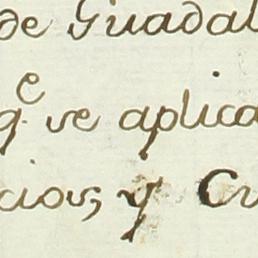 de Guadal
q^e se aplica
cios, y Cu